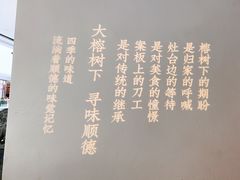 榕树下的期盼
是归家的呼喊
灶台边的等待
是对美食的憧憬
案板上的刀工
是对传统的继承
大榕树下 寻味顺德
四季的味道
流淌着顺德的味觉记忆